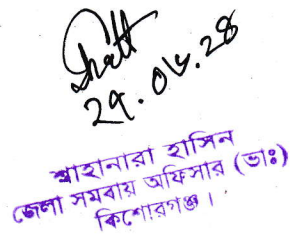 ২৭.০৮.২৪
শাহানারা হাসিন
জেলা সমবায় অফিসার (ভাঃ)
কিশোরগঞ্জ।